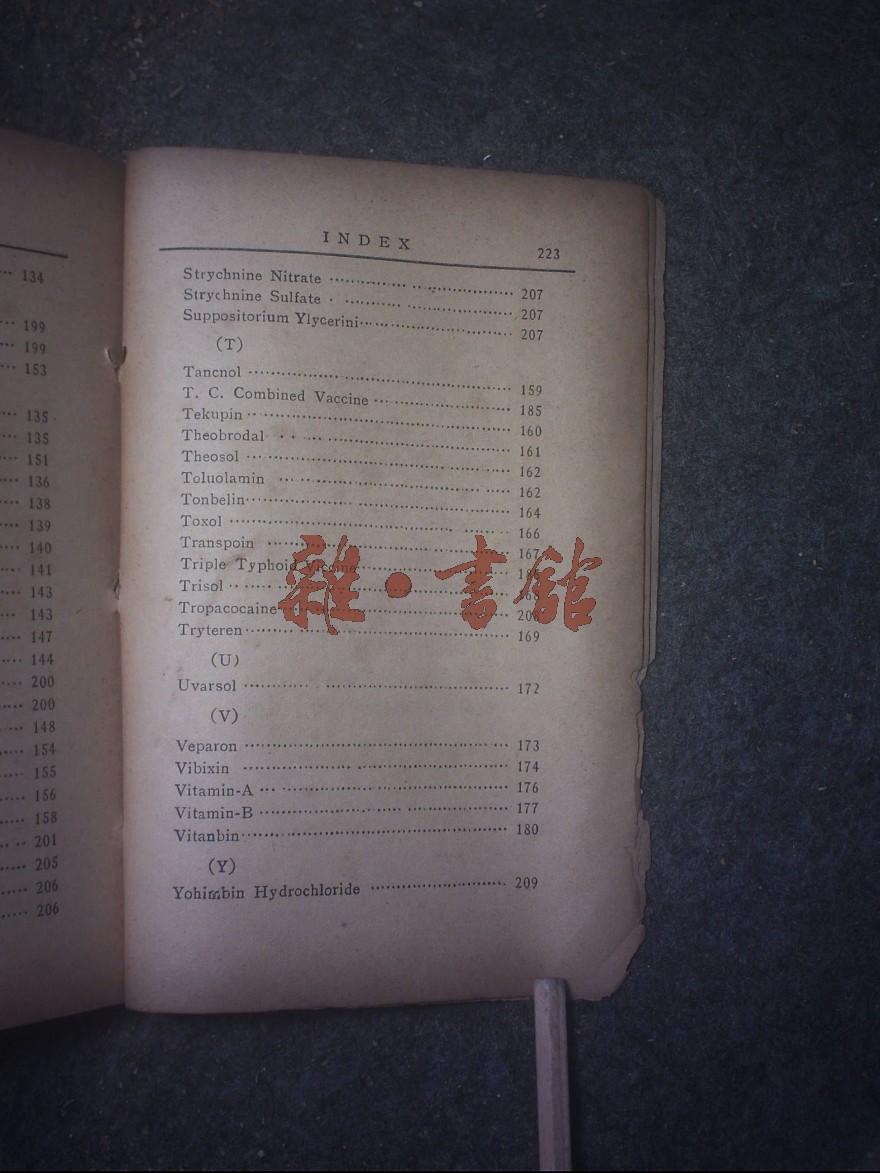 134
199
199
153
135
135
151
136
138
139
140
141
143
143
147
144
200
200
148
154
155
156
158
201
205
206
206
INDEX 223
Strychnine Nitrate 207
Strychnine Sulfate 207
Suppositorium Ylycerini 207
(T)
Tancnol 159
T. C. Combined Vaccine 185
Tekupin 160
Theobrodal 161
Theosol 162
Toluolamin 162
Tonbelin 164
Toxol 166
Transpoin 167
Triple Typhoid Vaccine
Trisol
Tropacocaine
Tryteren 169
(U)
Uvarsol 172
(V)
Veparon 173
Vibixin 174
Vitamin-A 176
Vitamin-B 177
Vitanbin 180
(Y)
Yohimbin Hydrochloride 209
雜·書館